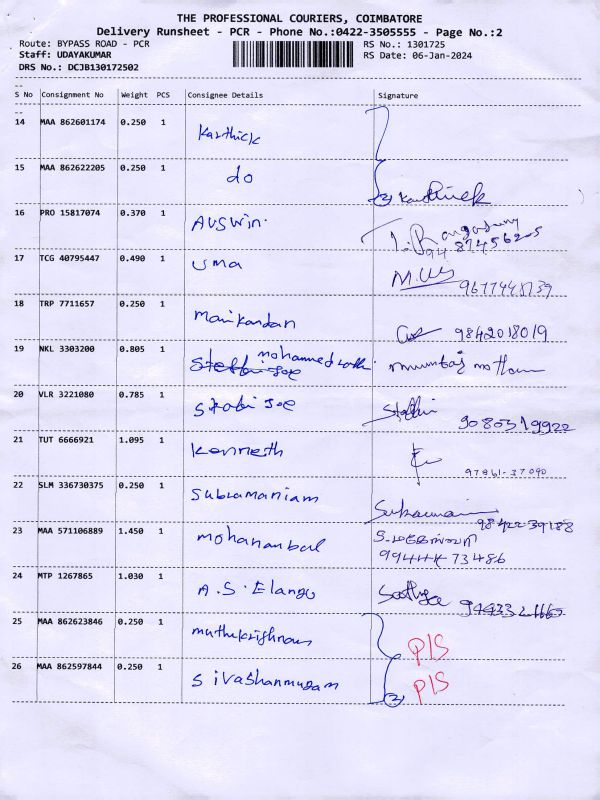 THE PROFESSIONAL COURIERS, COIMBATORE
Delivery Runsheet - PCR - Phone No.:0422-3505555 - Page No.:2
Route: BYPASS ROAD - PCR RS No.: 1301725
Staff: UDAYAKUMAR RS Date: 06-Jan-2024
DRS No.: DCJB130172502
S No Consignment No Weight PCS Consignee Details Signature
14 MAA 862601174 0.250 1 Karthick
15 MAA 862622205 0.250 1 do ② Karthick
16 PRO 15817074 0.370 1 Auswin.
17 TCG 40795447 0.490 1 Uma
18 TRP 7711657 0.250 1 Manikandan 9842018019
19 NKL 3303200 0.805 1 mohammed
20 VLR 3221080 0.785 1 9080519922
21 TUT 6666921 1.095 1 Kenneth 97861-37090
22 SLM 336730375 0.250 1 Subramaniam 98422 39188
23 MAA 571106889 1.450 1 mohanambal
99444 73486
24 MTP 1267865 1.030 1 A.S. Elango Sathya
25 MAA 862623846 0.250 1 muthukrishnan P/S
26 MAA 862597844 0.250 1 Sivashanmugam ② P/S